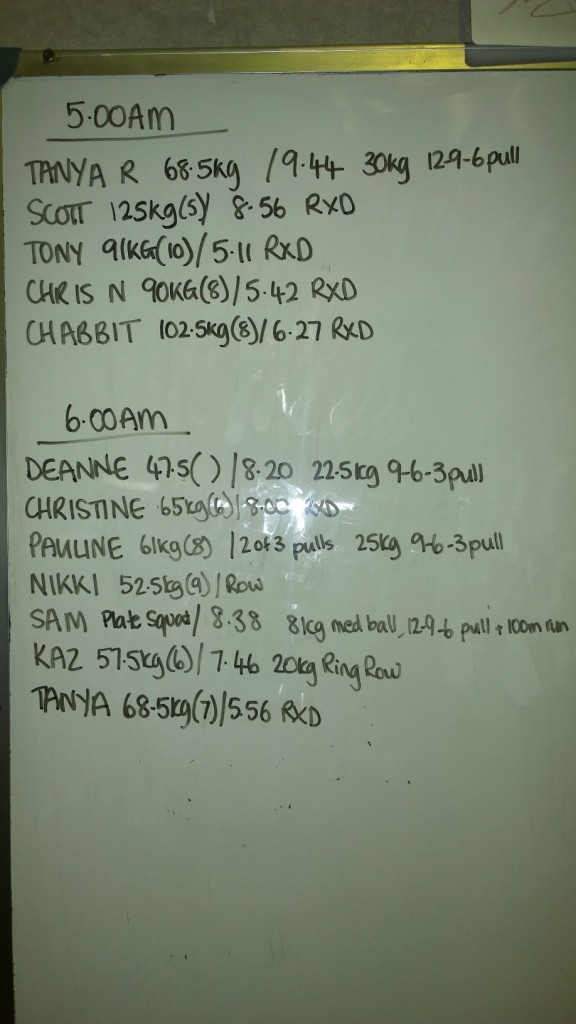 5.00AM
TANYA R 68.5kg /9.44 30kg 12-9-6 pull
SCOTT 125kg(5)/ 8.56 RXD
TONY 91KG(10)/5.11 RXD
CHRIS N 90KG(8)/5.42 RXD
CHABBIT 102.5kg(8)/6.27 RXD
6.00AM
DEANNE 47.5( )/8.20 22.5kg 9-6-3 pull
CHRISTINE 65kg(6)/8.00 RXD
PAULINE 61kg(8) /2 of 3 pulls 25kg 9-6-3 pull
NIKKI 52.5kg(9)/Row
SAM Plate Squat/ 8.38 8kg med ball, 12-9-6 pull + 100m run
KAZ 57.5kg(6)/7.46 20kg Ring Row
TANYA 68.5kg(7)/5.56 RXD